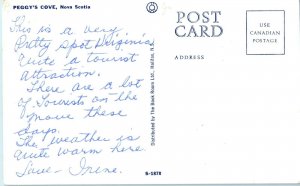 PEGGY'S COVE, Nova Scotia
This is a very
Pretty spot
Quite a tourist
attraction.
There are a lot
of Tourists on the
move these
days.
The weather is
quite warm here
Love - Irene.
Distributed by The Book Room Ltd., Halifax, N.S.
S-1878
POST
CARD
ADDRESS
USE
CANADIAN
POSTAGE